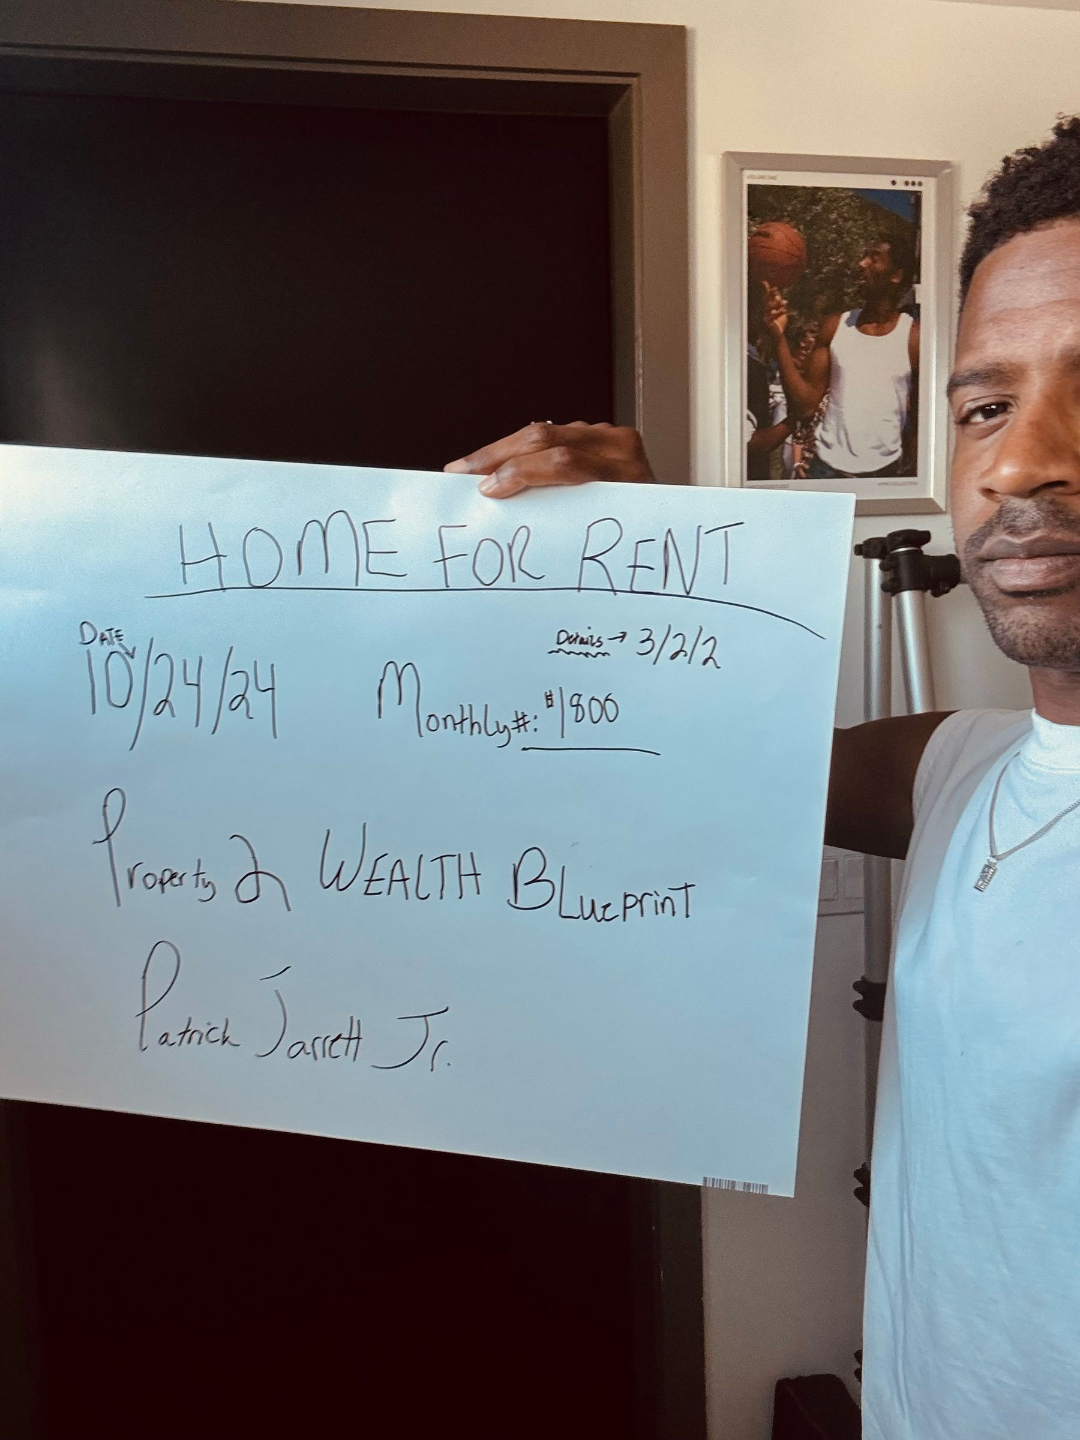 HOME FOR RENT
DATE
10/24/24
Details → 3/2/2
Monthly#: $1800
Property 2 WEALTH BLueprinT
Patrick Jarrett Jr.
VOLUME ONE